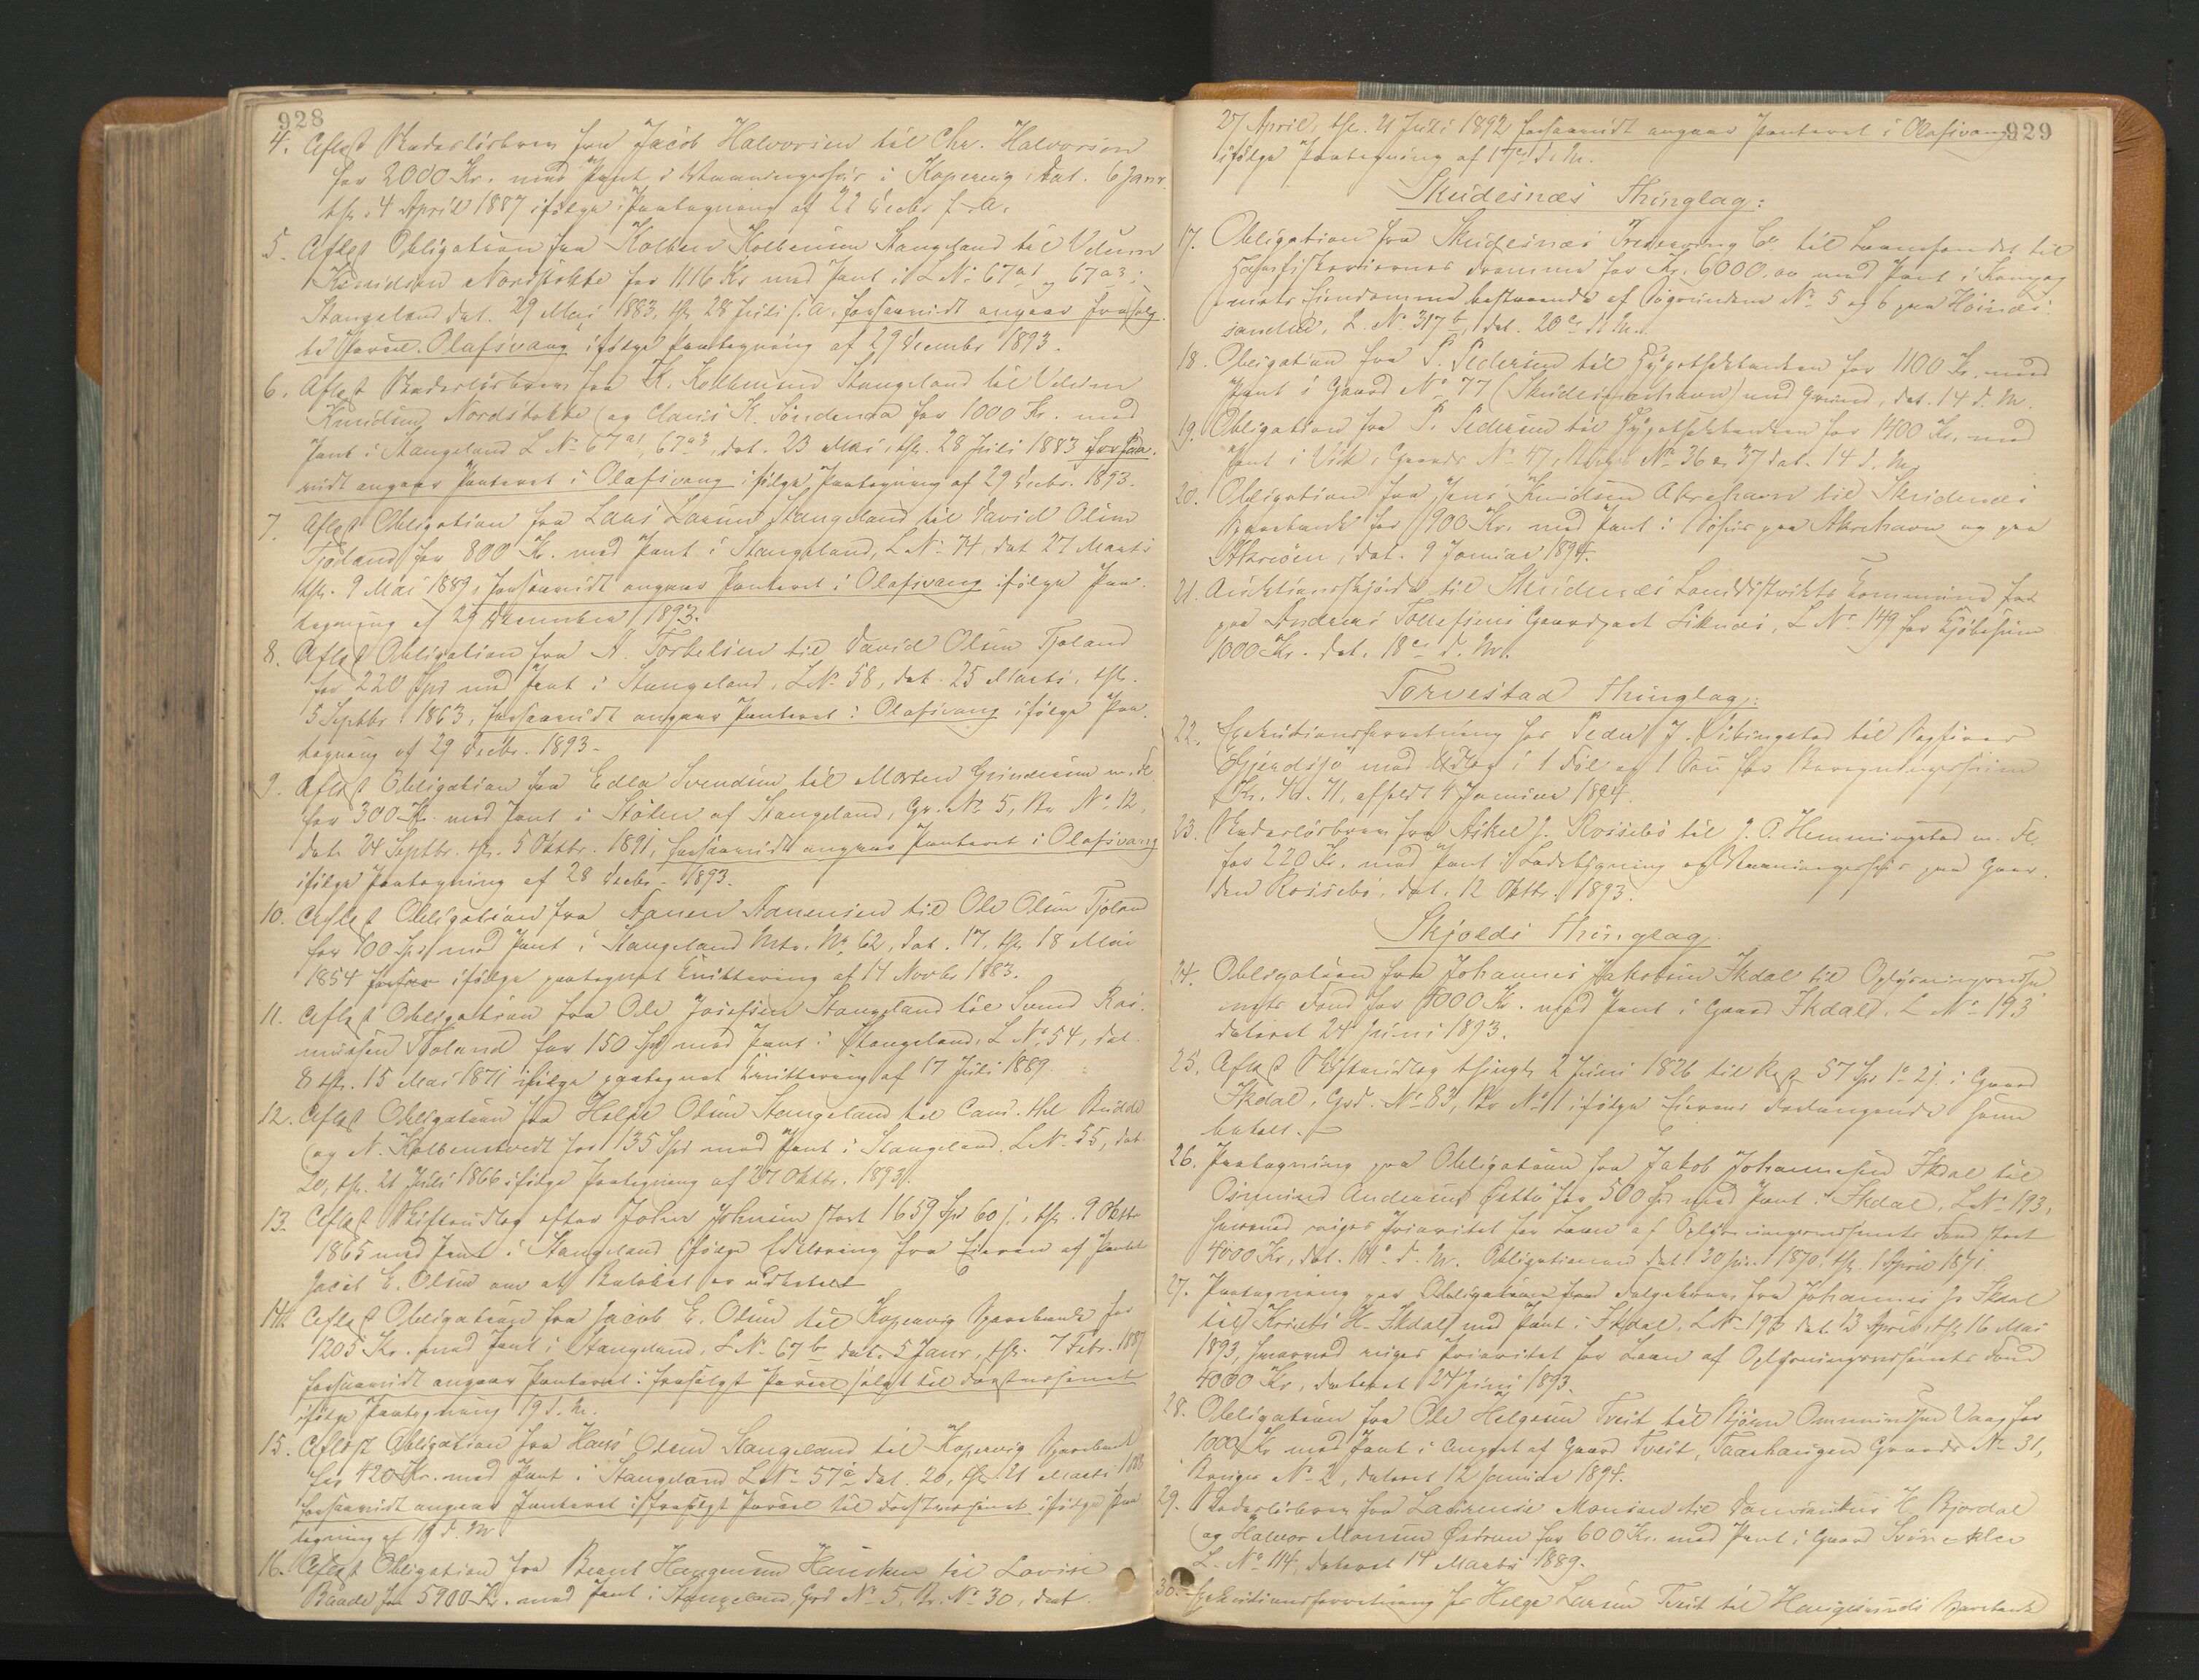 928
4. Aflæst Skadesløsbrev fra Jacob Halvorsen til Chr. Halvorsen
for 2000 Kr. med Pant i Vaaningshus i Kopervig, dat. 6 Janr
thl. 4 April 1887 ifølge Paategning af 22 Decbr f. A.
5. Aflæst Obligation fra Kolben Kolbensen Stangeland til Velum
Knudsen Nordstokke for 1116 Kr med Pant i L No 67a1 og 67a3 i
Stangeland dat. 29 Mai 1883, thl 28 Juli s. A. forsaavidt angaar frasolg-
te Parcel Olafsvang ifølge Paategning af 29 Decembr 1893.
6. Aflæst Skadesløsbrev fra K. Kolbensen Stangeland til Velum
Knudsen Nordstokke og Claus K. Sørdenaa for 1000 Kr. med
Pant i Stangeland L No 67a1, 67a3, dat. 23 Mai, thl. 28 Juli 1883 forsaa-
vidt angaar Panteret i Olafsvang ifølge Paategning af 29 Decbr. 1893.
7. Aflæst Obligation fra Lars Larsen Stangeland til David Olsen
Tjoland for 800 Kr. med Pant i Stangeland, L No 74, dat 27 Marts
thl. 9 Mai 1889, forsaavidt angaar Panteret i Olafsvang ifølge Paa-
tegning af 29 December 1893.
8. Aflæst Obligation fra A. Torbelsen til David Olsen Tjoland
for 220 Spd med Pant i Stangeland, L No 58, dat. 25 Marts, thl.
5 Septbr. 1863, forsaavidt angaar Panteret i Olafsvang ifølge Paa-
tegning af 29 Decbr. 1893.
9. Aflæst Obligation fra Edla Svendsen til Morten Gundersen m. Fl.
for 300 Kr. med Pant i Stølen af Stangeland, Gr. No 5, Br No 12,
dat. 24 Septbr. thl. 5 Oktbr. 1891, forsaavidt angaar Panteret i Olafsvang
ifølge Paategning af 28 Decbr. 1893.
10. Aflæst Obligation fra Aanen Aanensen til Ole Olsen Tjoland
for 100 Spd med Pant i Stangeland Mtr. No 62, dat. 17, thl. 18 Mai
1854 ifølge paategnet Kvittering af 14 Novbr 1883.
11. Aflæst Obligation fra Ole Josefsen Stangeland til Svend Ras-
mussen Tjoland for 150 Spd med Pant i Stangeland, L No 54, dat.
8 thl. 15 Mai 1871 ifølge paategnet Kvittering af 17 Juli 1889.
12. Aflæst Obligation fra Helje Olsen Stangeland til Cand. thl Budde
og N. Kolbenstvedt for 135 Spd med Pant i Stangeland, L No 55, dat
20, thl. 21 Juli 1866 ifølge Paategning af 27 Oktbr. 1893.
13. Aflæst Skifteudlæg efter John Johnsen stort 1659 Spd 60 s, thl. 9 Oktbr
1865 med Pant i Stangeland ifølge Erklæring fra Eieren af Pantet
Jacob E. Olsen om at Beløbet er udbetalt
14. Aflæst Obligation fra Jacob E. Olsen til Kopervig Sparebank for
1205 Kr. med Pant i Stangeland, L No 67b dat. 5 Janr, thl. 7 Febr. 1887
forsaavidt angaar Panteret i frasolgt Parcel solgt til Forstvæsenet
ifølge Paategning 19 d. M.
15. Aflæst Obligation fra Hans Olsen Stangeland til Kopervig Sparebank
for 420 Kr. med Pant i Stangeland L No 57a dat. 20, thl. 21 Marts
forsaavidt angaar Panteret i frasolgt Parcel til Forstvæsenet ifølge Paa-
tegning af 19 d. M
16. Aflæst Obligation fra Berent Haagensen Hausken til Lovise
Baade for 5900 Kr. med Pant i Stangeland, Grd No 5, Br. No 30, dat.
929
27 April, thl. 21 Juli 1892 forsaavidt angaar Panteret i Olafsvang
ifølge Paategning af 17de d. M.
Skudesnæs Thinglag:
17. Obligation fra Skudesnæs Co til Laanefondet til
Havfiskeriernes Fremme for Kr. 6000.00 med Pant i
Eiendomme bestaaende af Søgrundene No 5 og 6 paa
L. No 317b, dat. 20de d. M.
18. Obligation fra P. Pedersen til Hypothekbanken for 1100 Kr. med
Pant i Gaard No 77 (Skudesneshavn) med Grund, dat. 14 d. M.
19. Obligation fra P. Pedersen til Hypothekbanken for 1400 Kr. med
Pant i Vik, Gaards No 47, Brugs No 36 & 37 dat. 14 d. M.
20. Obligation fra Jens Knudsen Akrehavn til Skudenæs
Sparebank for 900 Kr. med Pant i Søhus paa Akrehavn og paa
dat. 9 Januar 1894.
21. Auktionsskjøde til Skudenæs Landdistrikts Kommune
paa Andreas Tollefsens Gaardpart Liknæs, L No 149 for Kjøbesum
1000 Kr. dat. 18de d. M.
Torvestad Thinglag:
22. Exekutionsforretning hos Peder J. Vibingstad til Sagfører
med Udlæg i 1 Føl og 1 Sau for Beregningssum
Kr. 71, afholdt 4 Januar 1894.
23. Skadesløsbrev fra Askel J. Rossebø til J. O. Hemmingstad m. Fl.
for 220 Kr. med Pant i Ladebygning og Vaaningshus paa Gaar-
den Rossebø, dat. 12 Oktbr. 1893.
Skjolds Thinglag
24. Obligation fra Johannes Jakobsen Ikdal til Oplysningsvæse-
nets Fond for 4000 Kr. med Pant i Gaard Ikdal, L No 193
dateret 24 Juni 1893.
25. Aflæst Skifteudlæg thingl. 2 Juni 1826 til Rest 57 Spd i Gaard
Ikdal, Grd. No 83, Br No 1 ifølge Eierens Forlangende som
betalt.
26. Paategning paa Obligation fra Jakob Johannesen Ikdal til
Osmund Andersen for 500 Spd med Pant i Ikdal, L No 193,
hvorved viges Prioritet for Laan af Oplysningsvæsenets Fond stort
4000 Kr, dat. d. M. Obligationen dat. 30 Juni 1870, thl. 1 April 1871.
27. Paategning paa Obligation fra Følgebrev fra Johannes J. Ikdal
til Kristi H. Ikdal med Pant i Ikdal, L No 193 dat. 13 April, thl 16 Mai
1893, hvorved viges Prioritet for Laan af Oplysningsvæsenets Fond
4000 Kr, dateret 24 Juni 1893.
28. Obligation fra Ole Helgesen Tveit til Bjørn Ommundsen Vaag for
1000 Kr med Pant i af Gaard Tveit, Gaards No 31,
Bruges No 2, dateret 12 Januar 1894.
29. Skadesløsbrev fra Laurense Monsen til Dominikus H Bjordal
og Halvor Monsen for 600 Kr. med Pant i Gaard
L. No 114, dateret 14 Marts 1889.
30. Exekutionsforretning hos Helge Larsen Tveit til Haugesunds Sparebank